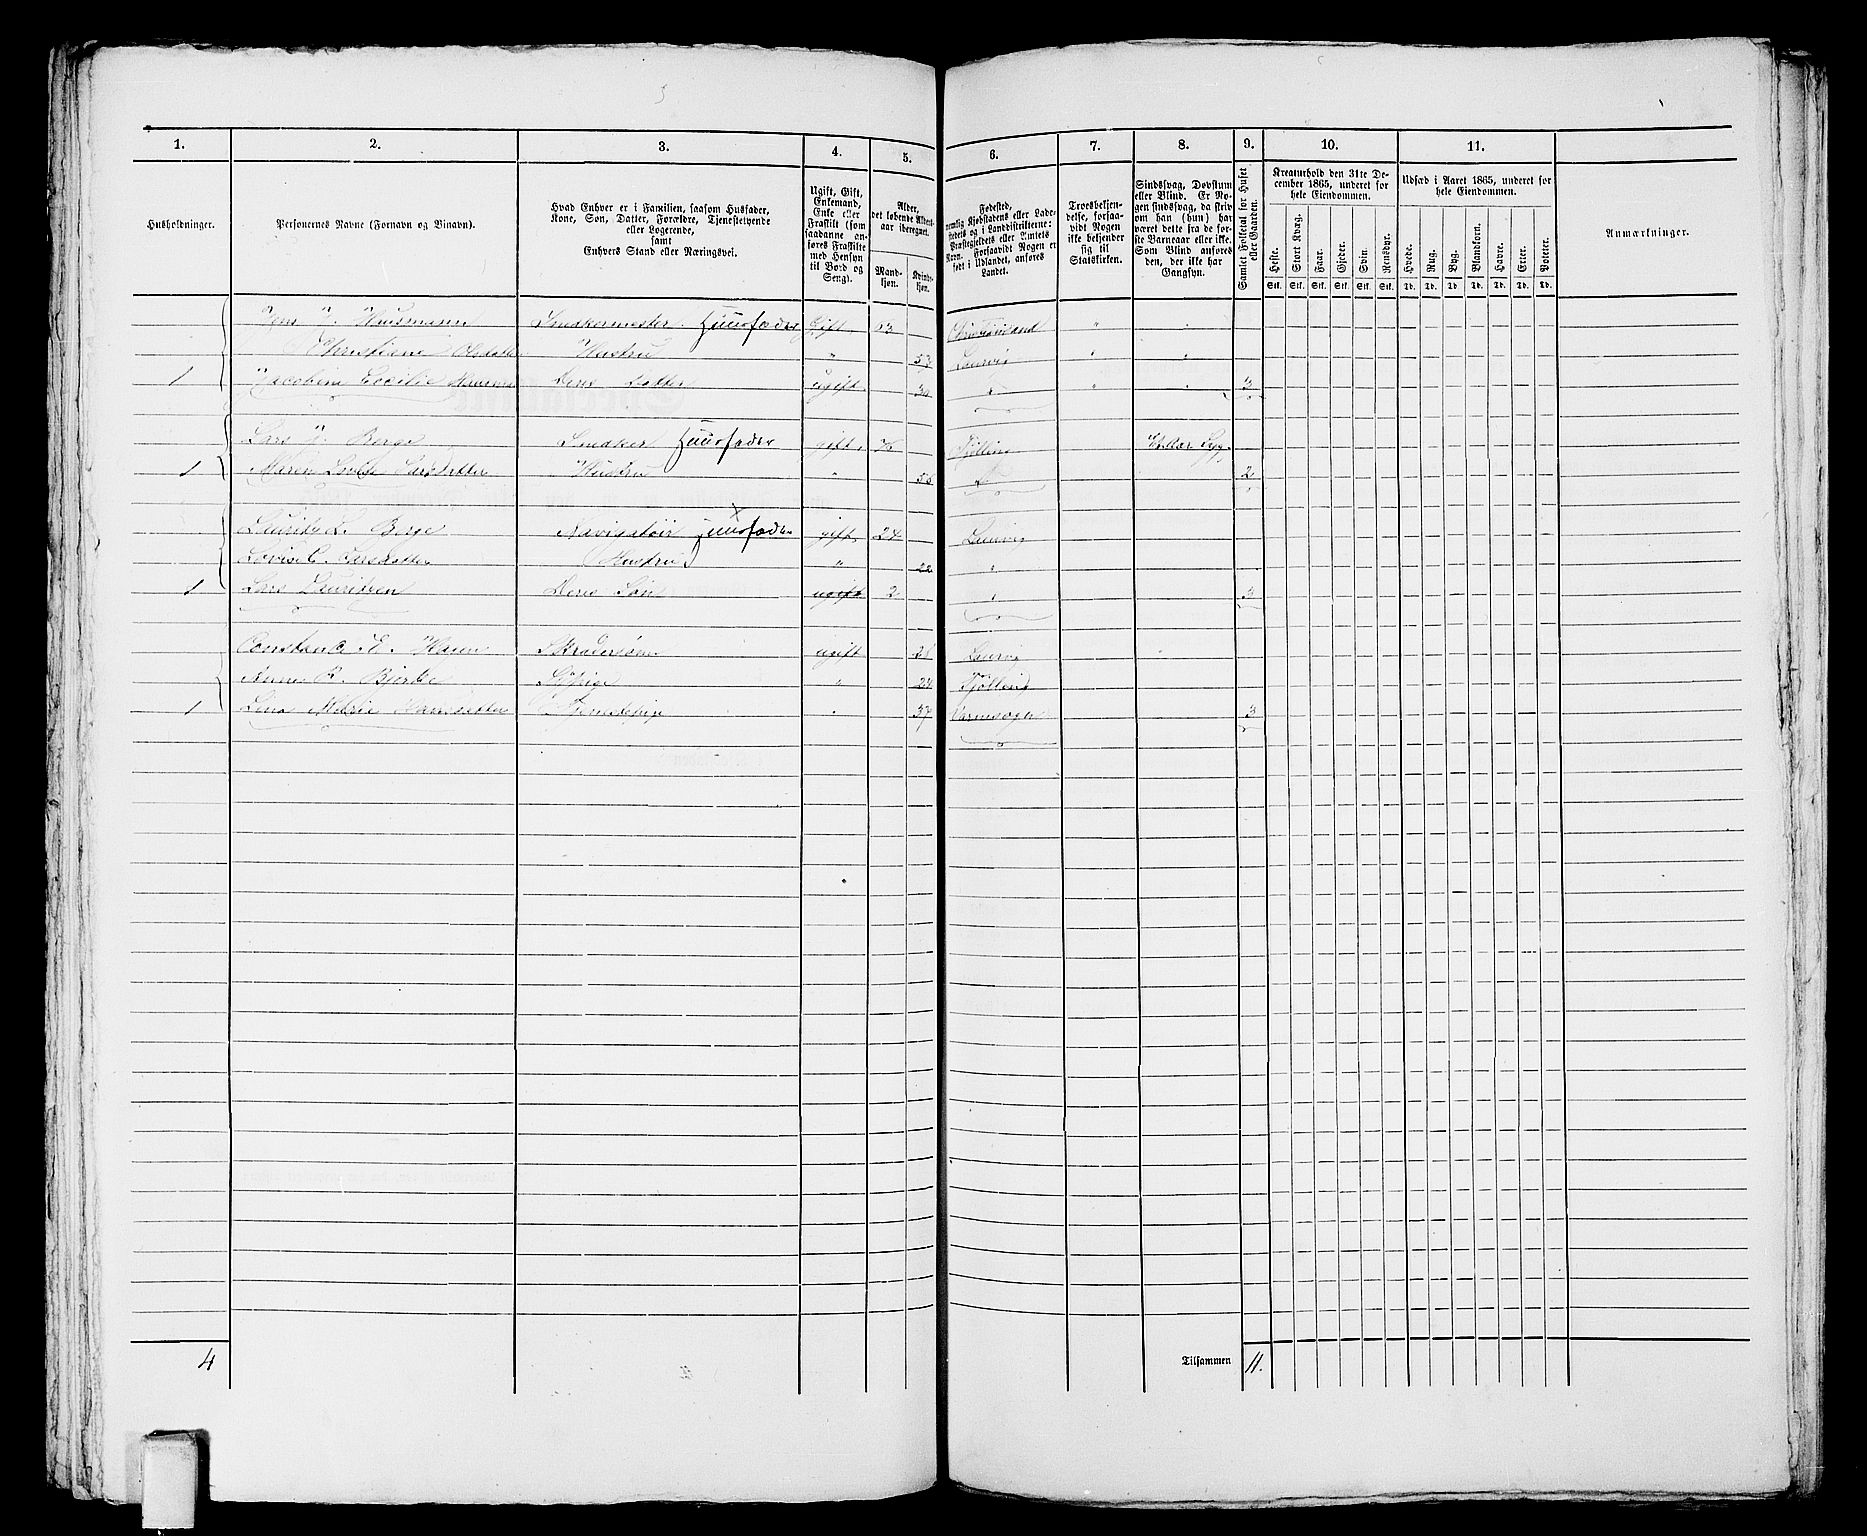 1. 2. 3. 4. 5. 6. 7. 8. 9. 10. 11.
Husholdninger.
Personernes Navne (Fornavn og Binavn).
Hvad Enhver er i Familien, saasom Husfader,
Kone, Søn, Datter, Forældre, Tjenestetyende
eller Logerende,
samt
Enhvers Stand eller Næringsvei.
Ugift, Gift,
Enkemand,
Enke eller
Fraskilt (som
saadanne an-
føres Fraskilte
med Hensyn
til Bord og
Seng).
Alder,
det løbende Alders-
aar iberegnet.
Mand-
kjøn.
Kvinde-
kjøn.
Fødested,
nemlig Kjøbstadens eller Lade-
stedets og i Landdistrikterne:
Præstegjeldets eller Amtets
Navn. Forsaavidt Nogen er
født i Udlandet, anføres
Landet.
Troesbekjen-
delse, forsaa-
vidt Nogen
ikke bekjender
sig til
Statskirken.
Sindssvag, Døvstum
eller Blind. Er No-
gen sindssvag, da skriv
om han (hun) har
været dette fra de før-
ste Barneaar eller ikke.
Som Blind anføres
den, der ikke har
Gangsyn.
Samlet Folketal for Huset
eller Gaarden.
Kreaturhold den 31te De-
cember 1865, underet for
hele Eiendommen.
Heste. Stort Kvæg. Faar. Gjeder. Svin. Rensdyr.
Stk. Stk. Stk. Stk. Stk. Stk.
Udsæd i Aaret 1865, underet for
hele Eiendommen.
Hvede. Rug. Byg. Blandkorn. Havre. Erter. Poteter.
Td. Td. Td. Td. Td. Td. Td.
Anmærkninger.
Jens J. Husmann Snedkermester Huusfader Gift 53 Christiansand " "
Christiane Olsdatter Hustru " 53 Laurvig " "
1 Jacobine Cecilie Husmann Deres Datter ugift 30 " " " 3
Lars J. Berge Snedker Huusfader gift Tjølling
1 Maren Larsdatter Hustru " 55 2
Lauritz L. Berge Navigatør Huusfader gift 24 Laurvig
Lovise C. Larsdatter Hustru " 22 "
1 Lars Lauritzen Deres Søn ugift 2 " 3
Constance E. ugift 28 Laurvig
Anne B. Bjerke Syepige " 24 Tjølling
1 Lina Marie Hansdatter Tjenestepige " 37 3
4 Tilsammen 11.